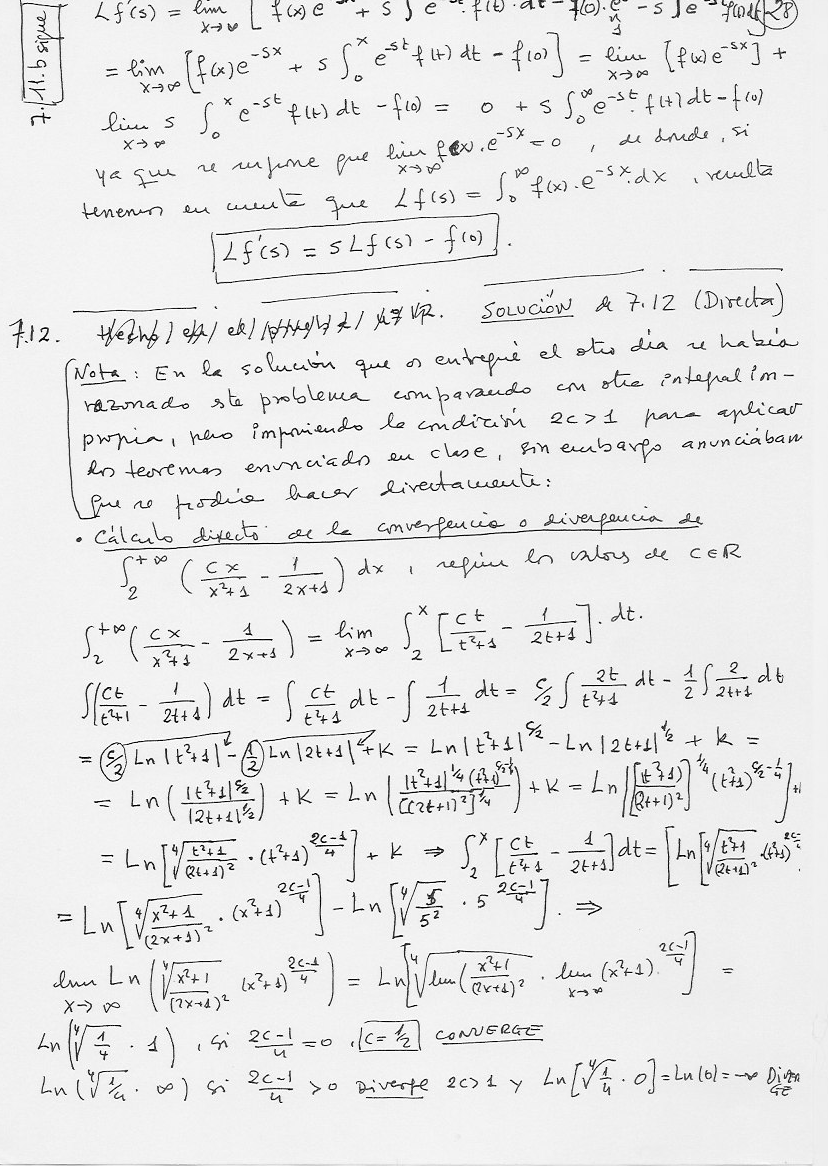 7/11.b sigue
28
Lf'(s) = lim x→∞ [ f(x)e^-sx + s ∫ e^-st f(t) dt - f(0)
= lim x→∞ [f(x)e^-sx + s ∫_0^x e^-st f(t) dt - f(0)] = lim x→∞ [f(x)e^-sx] +
lim x→∞ s ∫_0^x e^-st f(t) dt - f(0) = 0 + s ∫_0^∞ e^-st f(t) dt - f(0)
ya que se supone que lim x→∞ f(x).e^-sx = 0, de donde, si
tenemos en cuenta que Lf(s) = ∫_0^∞ f(x).e^-sx.dx, resulta
Lf'(s) = s Lf(s) - f(0).
7.12. SOLUCIÓN de 7.12 (Directa)
Nota: En la solución que os entregué el otro día se había
razonado este problema comparando con otra integral im-
propia, pero imponiendo la condición 2c>1 para aplicar
los teoremas enunciados en clase, sin embargo anunciában
que se podría hacer directamente:
• Cálculo directo de la convergencia o divergencia de
∫_2^+∞ (cx/(x²+1) - 1/(2x+1)) dx, según los valores de c∈R
∫_2^+∞ (cx/(x²+1) - 1/(2x+1)) = lim x→∞ ∫_2^x [ct/(t²+1) - 1/(2t+1)].dt.
∫(ct/(t²+1) - 1/(2t+1)) dt = ∫ ct/(t²+1) dt - ∫ 1/(2t+1) dt = c/2 ∫ 2t/(t²+1) dt - 1/2 ∫ 2/(2t+1) dt
= c/2 Ln|t²+1| - 1/2 Ln|2t+1| + K = Ln|t²+1|^c/2 - Ln|2t+1|^1/2 + K =
= Ln(|t²+1|^c/2 / |2t+1|^1/2) + K = Ln(|t²+1|^1/4 (t²+1)^(c/2-1/4) / [(2t+1)²]^1/4) + K = Ln([(t²+1)/(2t+1)²]^1/4 (t²+1)^(c/2-1/4)) +
= Ln[⁴√((t²+1)/(2t+1)²) · (t²+1)^((2c-1)/4)] + K ⇒ ∫_2^x [ct/(t²+1) - 1/(2t+1)] dt = [Ln[⁴√((t²+1)/(2t+1)²) (t²+1)^
= Ln[⁴√((x²+1)/(2x+1)²) · (x²+1)^((2c-1)/4)] - Ln[⁴√(5/5²) · 5^((2c-1)/4)]. ⇒
lim x→∞ Ln(⁴√((x²+1)/(2x+1)²) (x²+1)^((2c-1)/4)) = Ln[⁴√(lim((x²+1)/(2x+1)²) · lim x→∞ (x²+1)^((2c-1)/4)] =
Ln(⁴√(1/4) · 1), si (2c-1)/4 = 0, c = 1/2 CONVERGE
Ln(⁴√(1/4) · ∞) si (2c-1)/4 > 0 Diverge 2c>1 y Ln[⁴√(1/4) · 0] = Ln(0) = -∞ DIVERGE